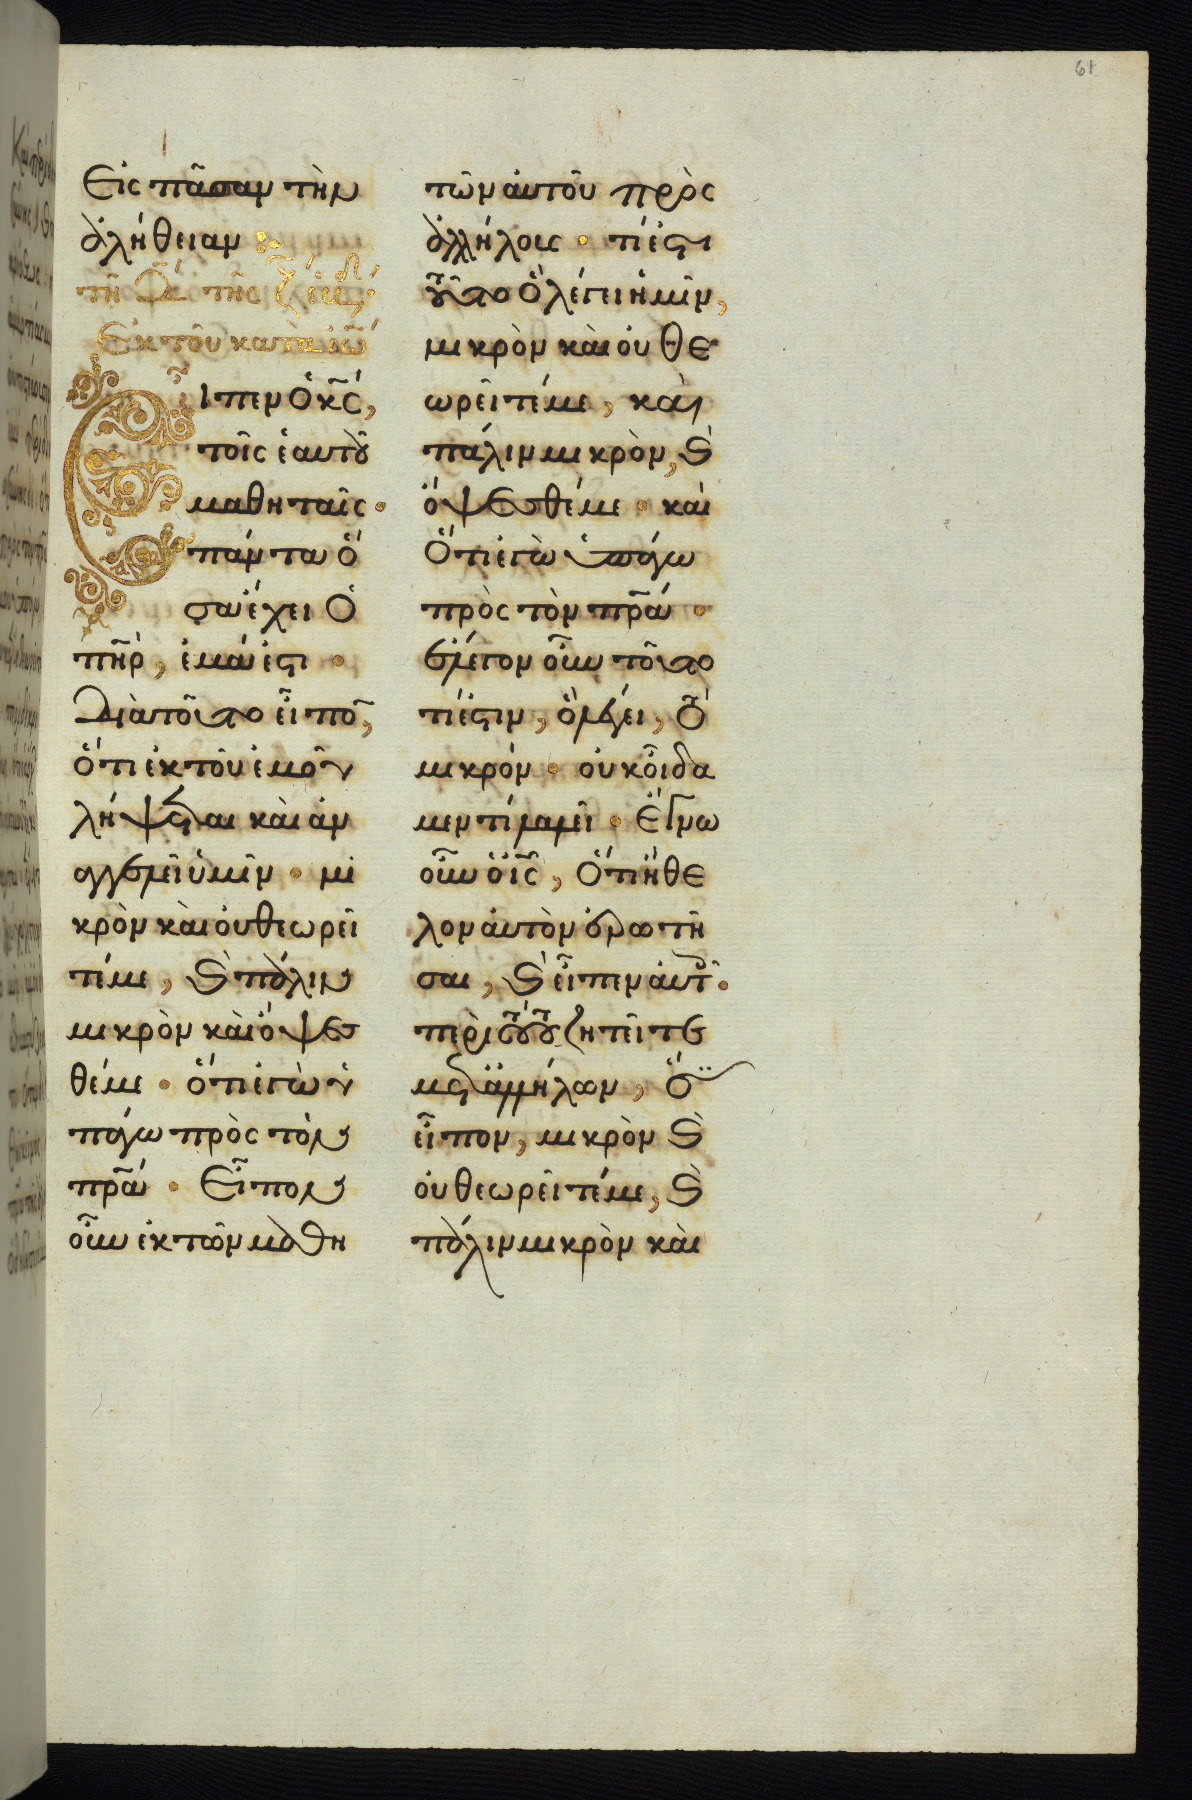 61
Εἰς πᾶσαν τὴν
ἀλήθειαν
τῇ
τῆς
Ἐκ τοῦ κατὰ ἰω
ἶπεν ὁ κς,
τοῖς ἑαυτοῦ
μαθηταῖς·
πάντα ὅ
σα ἔχει ὁ
πηρ, ἐμά ἐστι·
διατοῦτο εἶπον,
ὅτι ἐκ τοῦ ἐμοῦ
λήψεται καὶ ἀν
αγγελεῖ ὑμῖν· μι
κρὸν καὶ οὐ θεωρεῖ
τέ με, καὶ πάλιν
μικρὸν καὶ ὄψεσ
θέ με· ὅτι ἐγὼ ὑ
πάγω πρὸς τὸν
πρα· Εἶπον
οὖν ἐκ τῶν μαθη
τῶν αὐτοῦ πρὸς
ἀλλήλους· τί ἐστι
τοῦτο ὃ λέγει ἡμῖν,
μικρὸν καὶ οὐ θε
ωρεῖτέ με, καὶ
πάλιν μικρὸν, καὶ
ὄψεσθέ με· καὶ
ὅτι ἐγὼ ὑπάγω
πρὸς τὸν πρα·
ἔλεγον οὖν τοῦτο
τί ἐστιν, ὃ λέγει, τὸ
μικρόν· οὐκ οἴδα
μεν τί λαλεῖ· Ἔγνω
οὖν ὁ ις, ὅτι ἤθε
λον αὐτὸν ἐρωτῆ
σαι, καὶ εἶπεν αὐτοῖς·
περὶ τούτου ζητεῖτε
μετ ἀλλήλων, ὅτι
εἶπον, μικρὸν καὶ
οὐ θεωρεῖτέ με, καὶ
πάλιν μικρὸν καὶ